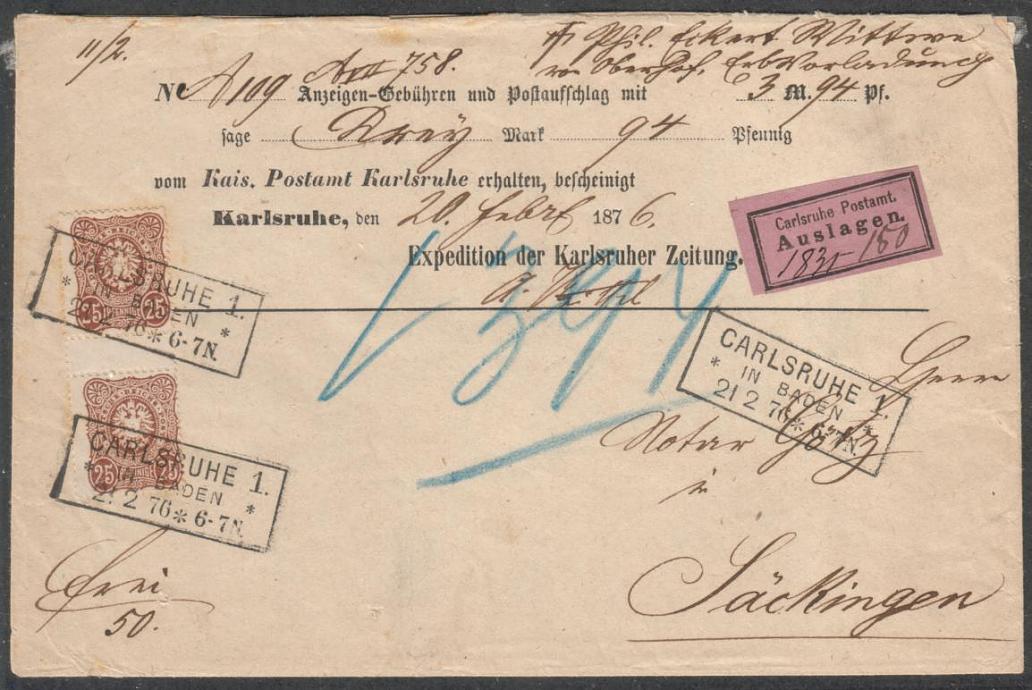 11/2.
Phil. Eckert Wittwe
Oberhof, Erbvorladung
A 758.
No A 109 Anzeigen-Gebühren und Postaufschlag mit 3 M. 94 Pf.
sage Drey Mark 94 Pfennig
vom Kais. Postamt Karlsruhe erhalten, bescheinigt
Karlsruhe, den 20. Febr 1876.
Expedition der Karlsruher Zeitung.
Carlsruhe Postamt.
Auslagen.
394
25 PFENNIGE 25
CARLSRUHE 1.
* IN BADEN *
21 2 76 * 6-7N.
CARLSRUHE 1.
* IN BADEN *
21 2 76 * 6-7N.
Herrn
Notar Götz
in
Säckingen
25 PFENNIGE 25
CARLSRUHE 1.
* IN BADEN *
21 2 76 * 6-7N.
frei
50.